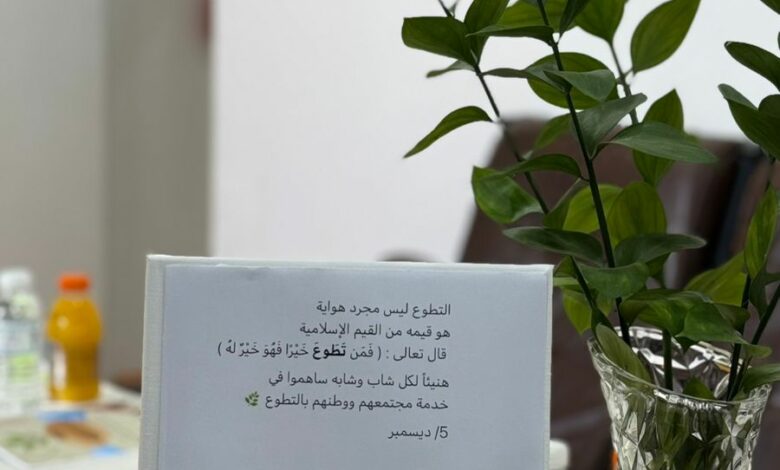 التطوع ليس مجرد هواية
هو قيمه من القيم الإسلامية
قال تعالى : ( فَمَن تَطَوعَ خَيْرًا فَهُوَ خَيْرٌ لهُ )
هنيئاً لكل شاب وشابه ساهموا في
خدمة مجتمعهم ووطنهم بالتطوع 🌿
5/ ديسمبر